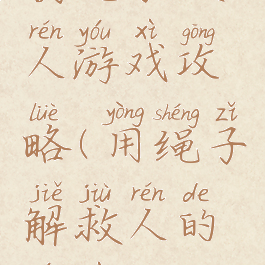 rén yóu xì gōng
人游戏攻
lüè yòng shéng zǐ
略(用绳子
jiě jiù rén de
解救人的